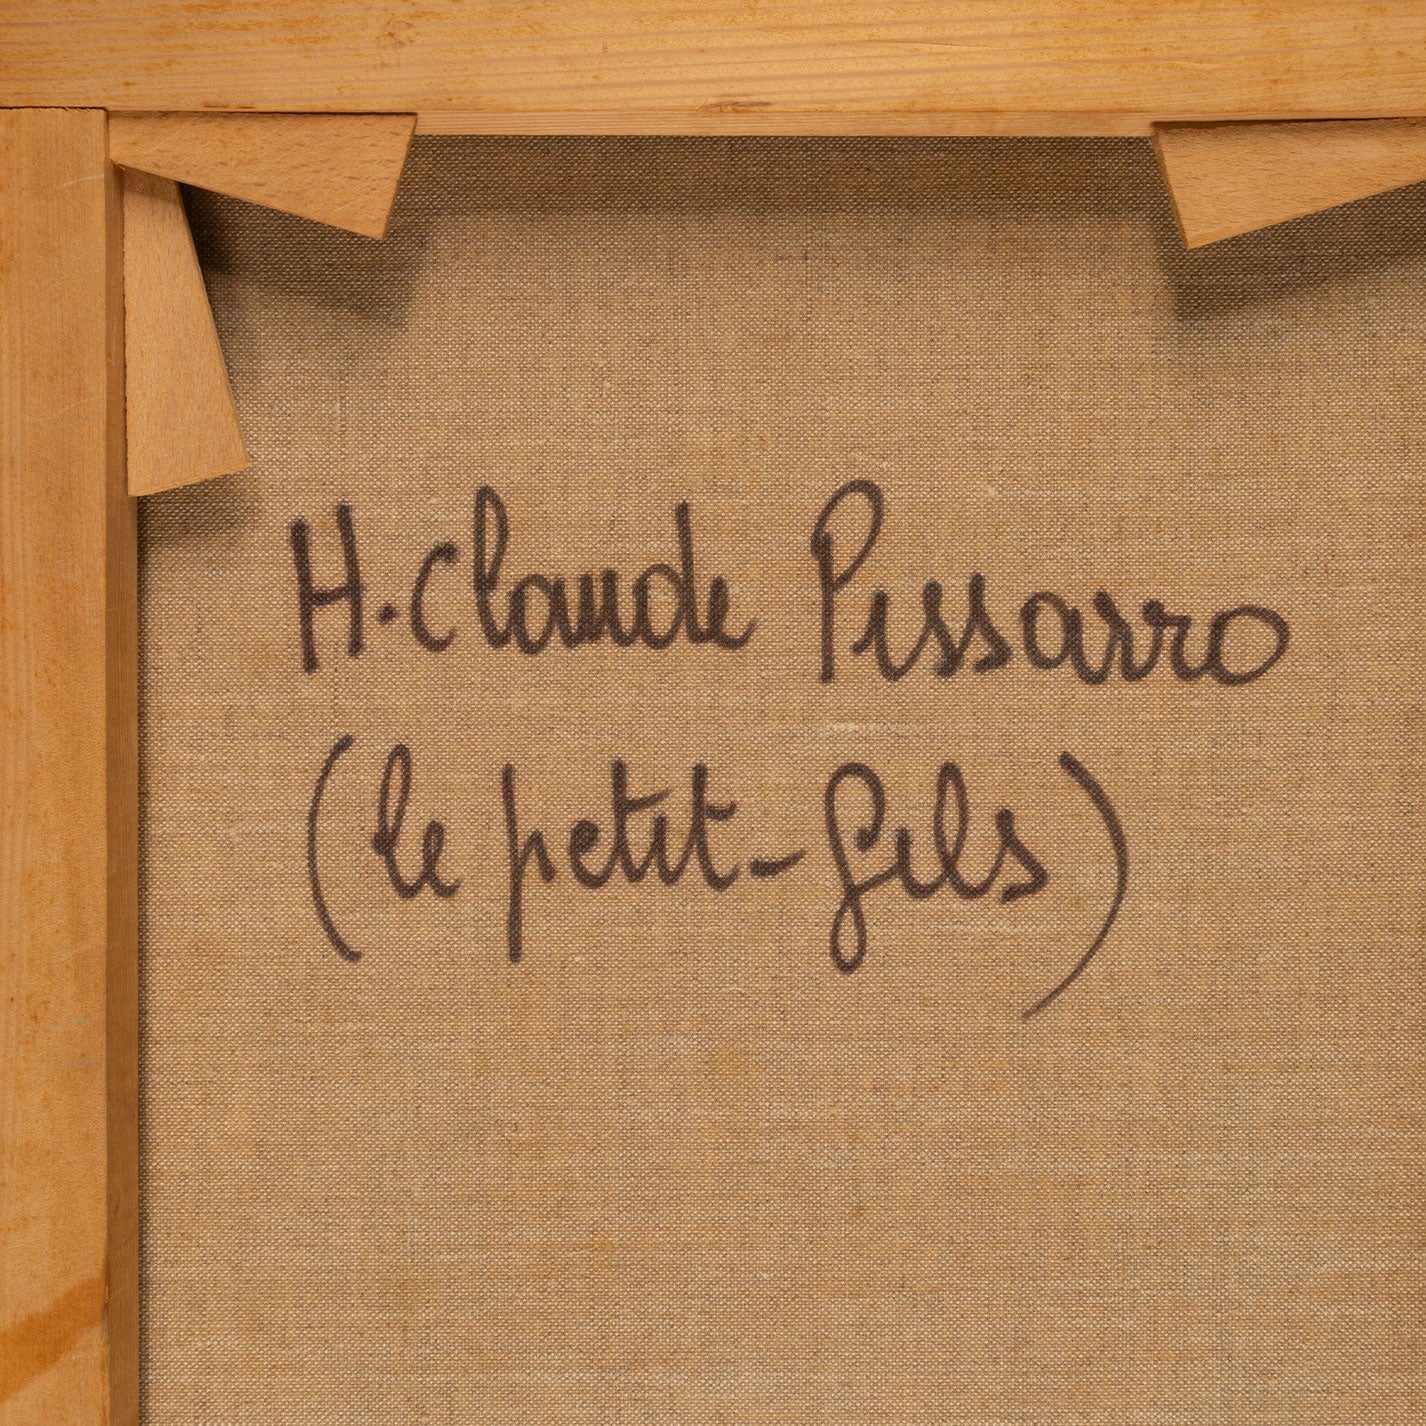 H. Claude Pissarro
(le petit-fils)